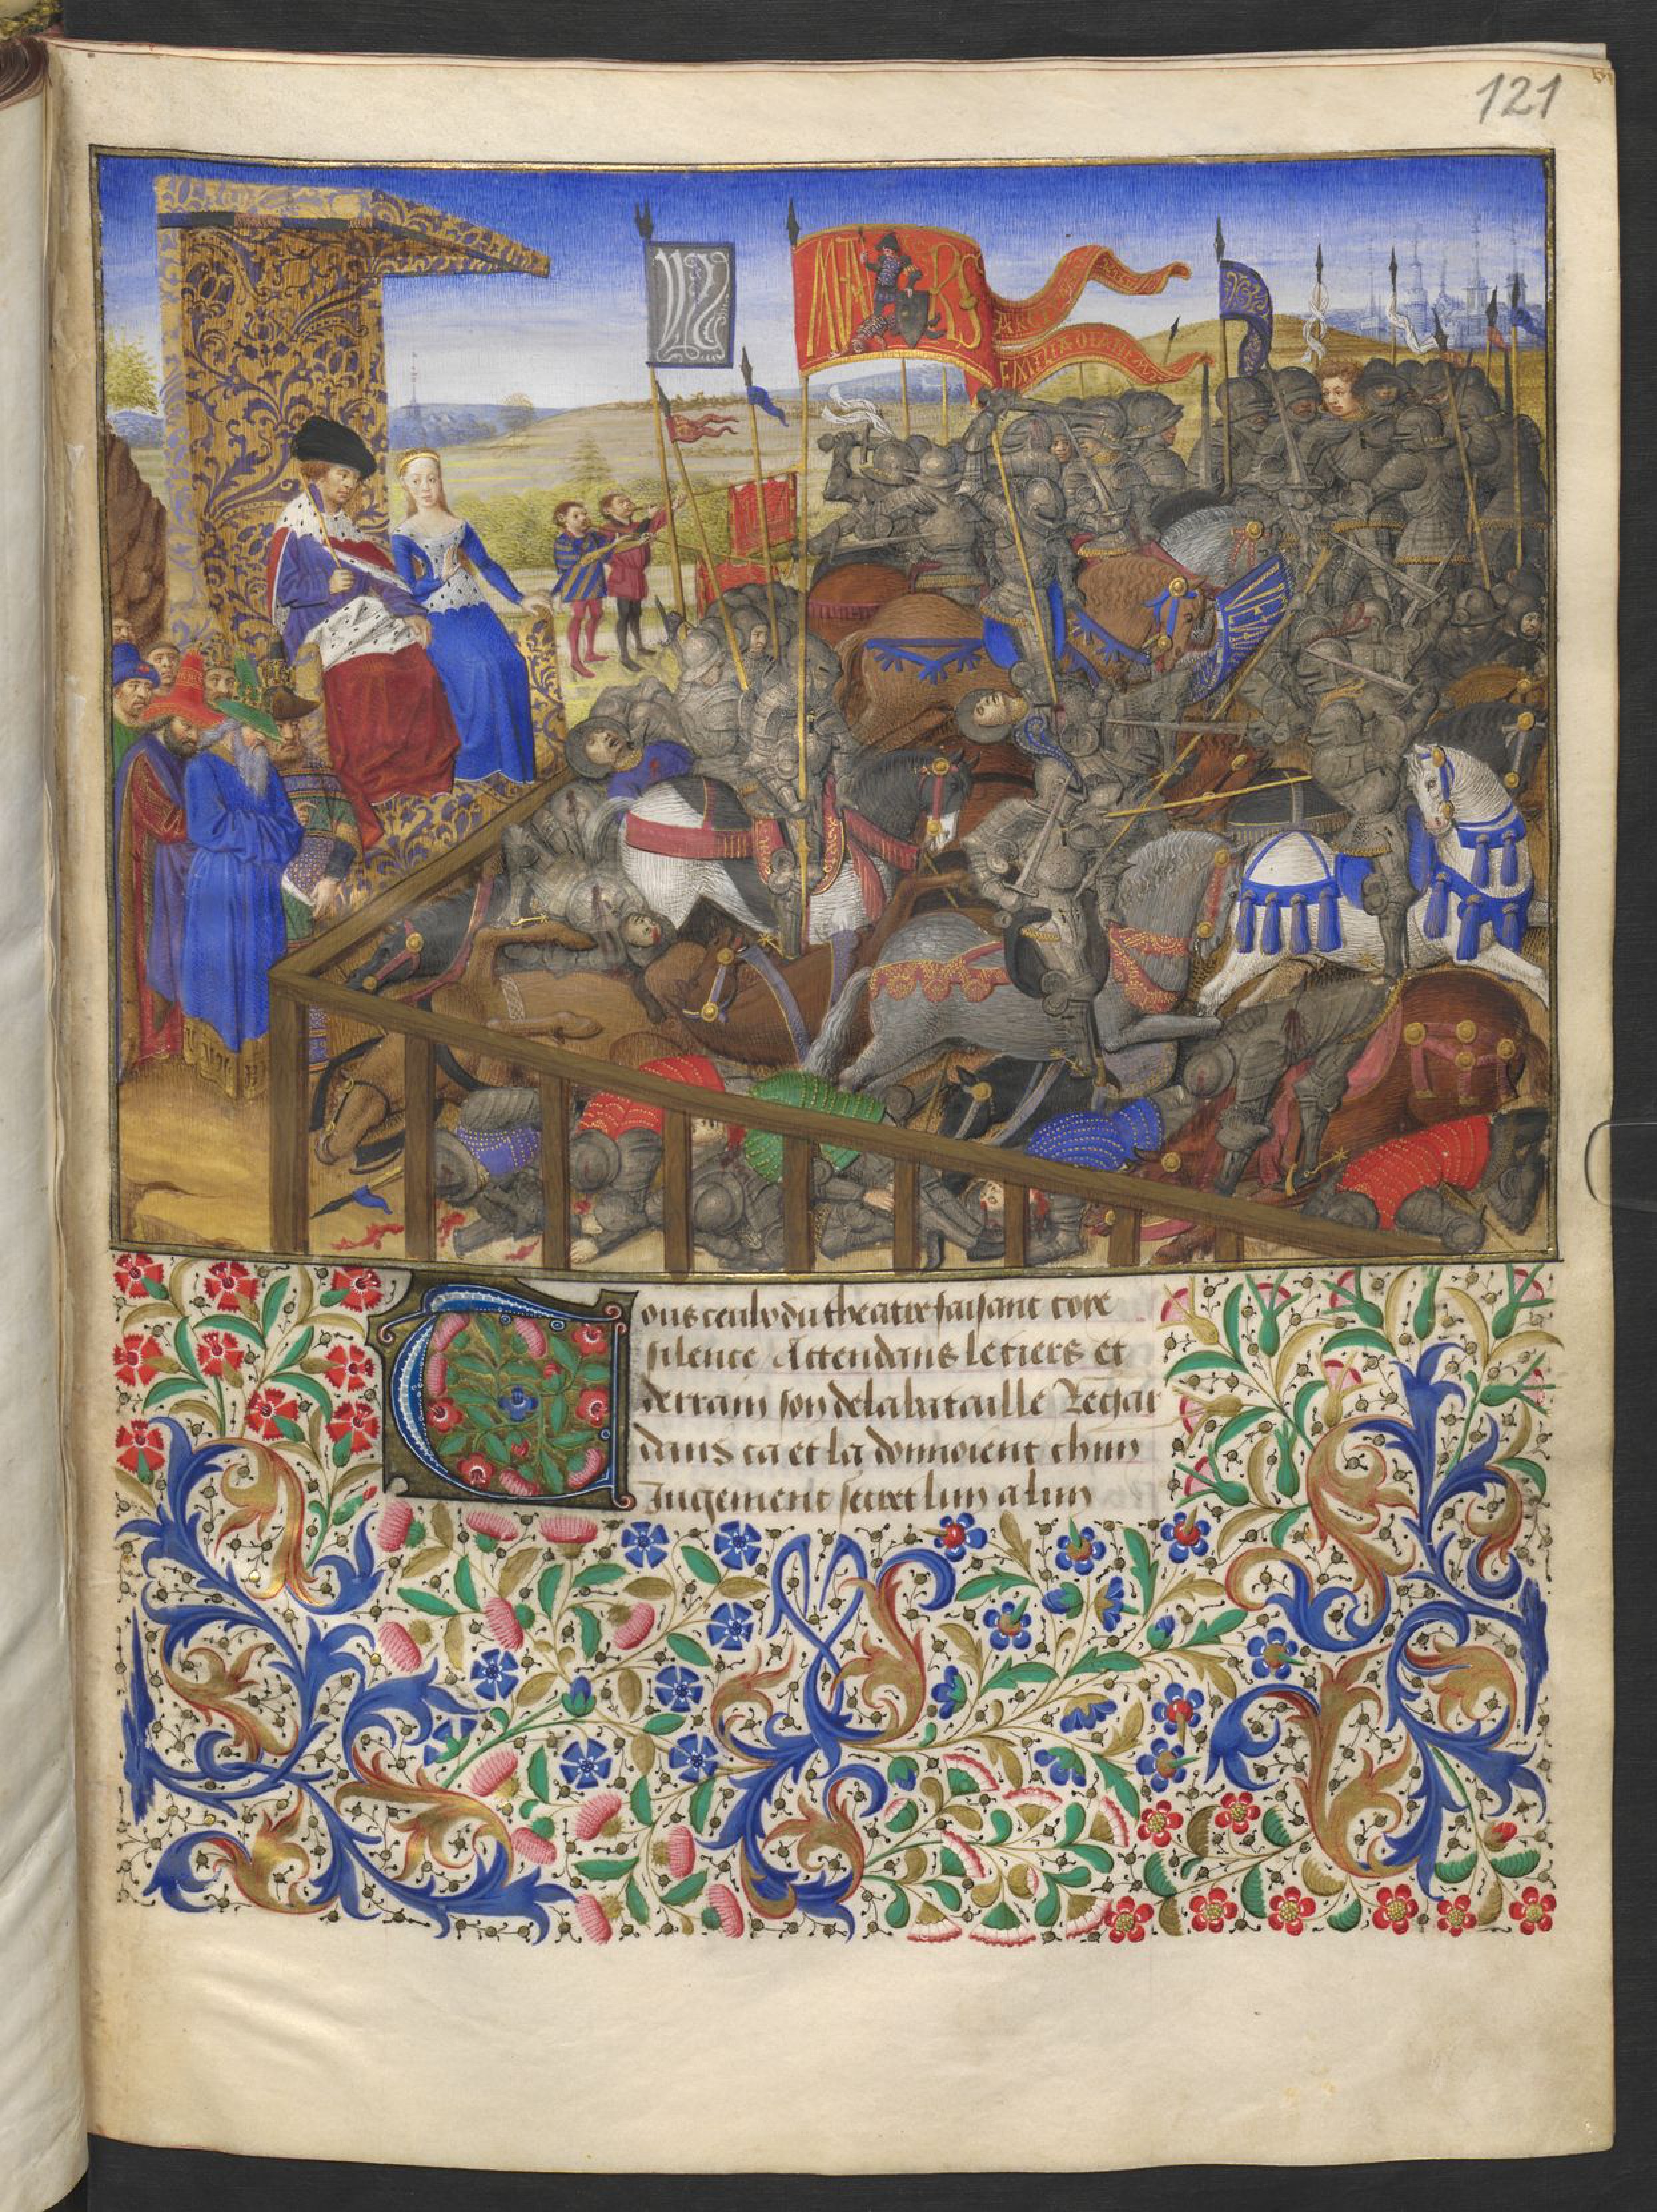 121
MARS
Tous ceulx du theatre faisant coye
silence Attendans le tiers et
derrain son de la bataille Regar
dans ca et la donnoient chun
Jugement secret lun a lun